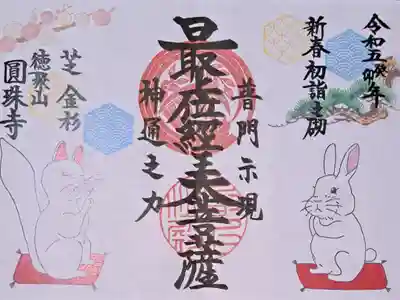 令和五癸卯年
新春初詣之砌
普門示現
最上位經王大菩薩
神通之力
芝金杉
徳聚山
圓珠寺